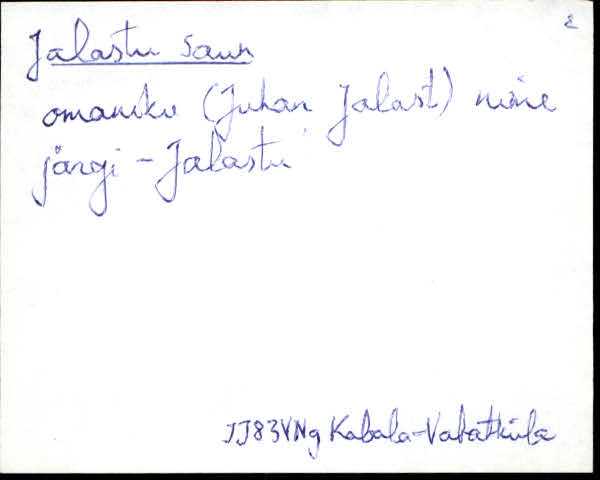 2
Jalastu saun
omaniku (Juhan Jalast) nime
järgi - Jalastu
JJ83VNg Kabala-Vabatküla